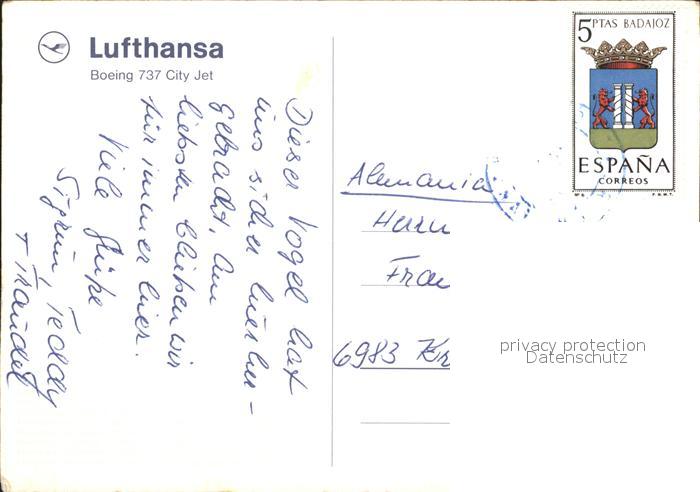 Lufthansa
Boeing 737 City Jet
Dieser Vogel hat
uns sicher hierher-
gebracht. Am
liebsten blieben wir
für immer hier.
Viele Grüße
Sigrun, Teddy
+ Traudel
5 PTAS BADAJOZ
ESPAÑA
CORREOS
F.N.M.T.
Alemania
Herrn
Frau
6983 Kr
privacy protection
Datenschutz